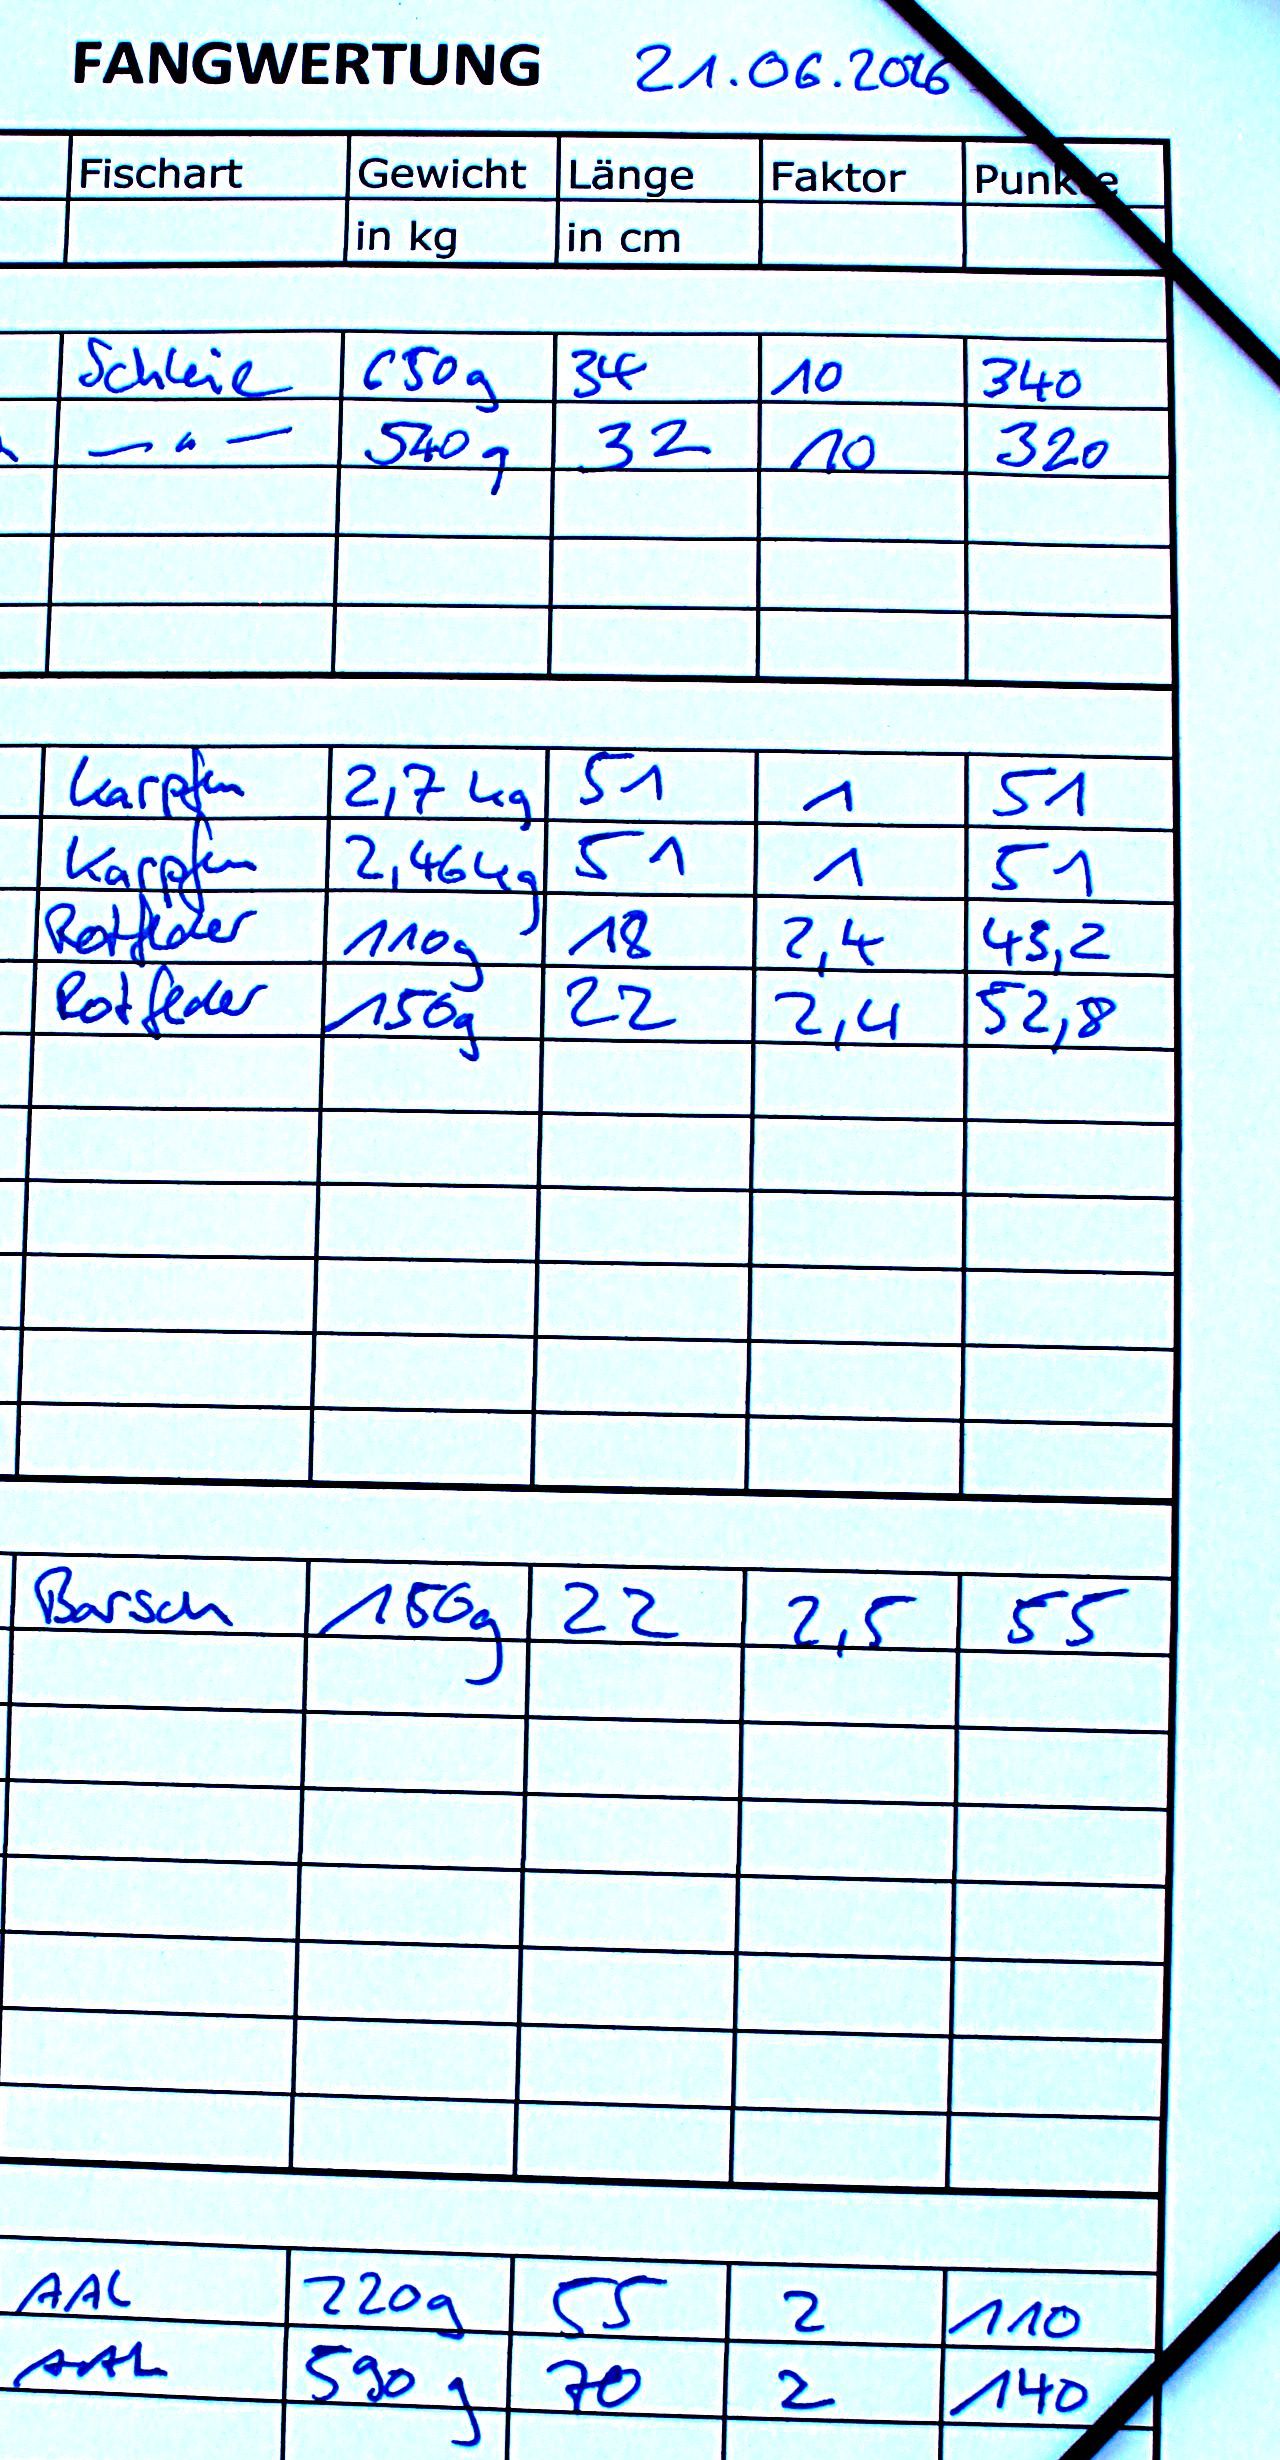 FANGWERTUNG 21.06.2016
Fischart Gewicht Länge Faktor Punkte
in kg in cm
Schleie 650g 34 10 340
— " — 540g 32 10 320
Karpfen 2,7 kg 51 1 51
Karpfen 2,46 kg 51 1 51
Rotfeder 110g 18 2,4 43,2
Rotfeder 150g 22 2,4 52,8
Barsch 150g 22 2,5 55
AAL 220g 55 2 110
AAL 590 g 70 2 140